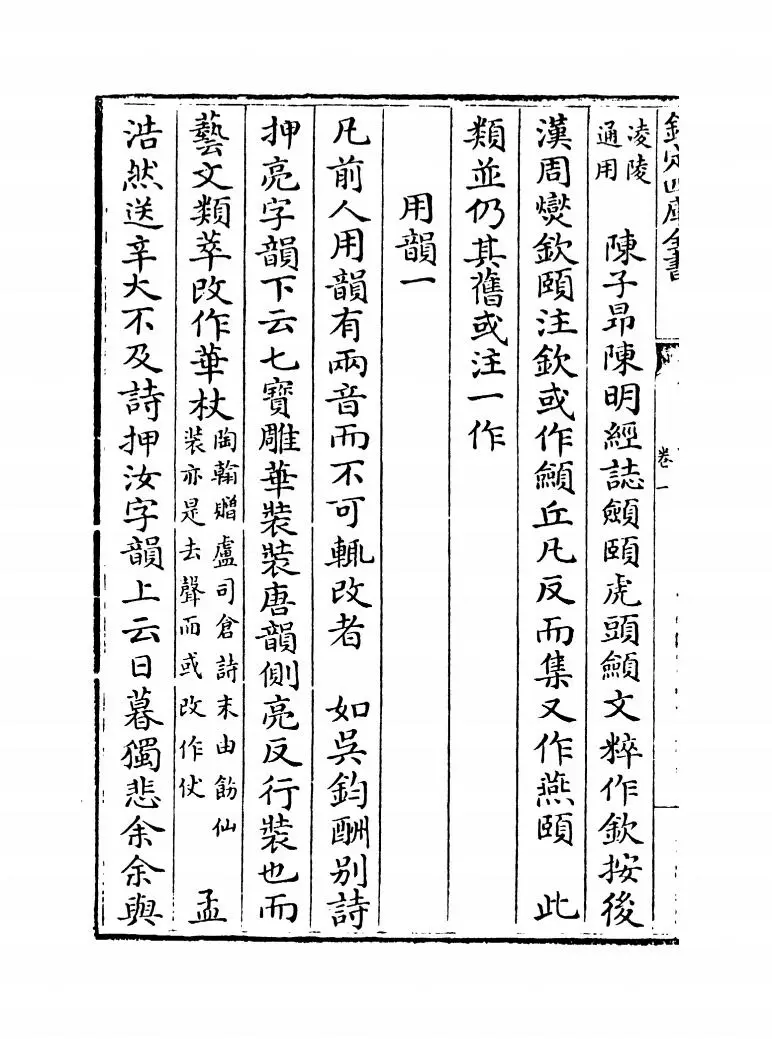 欽定四庫全書
卷一
凌陵
通用
陳子昂陳明經誌顩頤虎頭顩文粹作欽按後
漢周燮欽頤注欽或作顩丘凡反而集又作燕頤　此
類並仍其舊或注一作
用韻一
凡前人用韻有兩音而不可輒改者　如吳鈞酬别詩
押亮字韻下云七寶雕華裝裝唐韻側亮反行裝也而
藝文類萃改作華杖
陶翰贈盧司倉詩末由飭仙
裝亦是去聲而或改作仗
孟
浩然送辛大不及詩押汝字韻上云日暮獨悲余余與